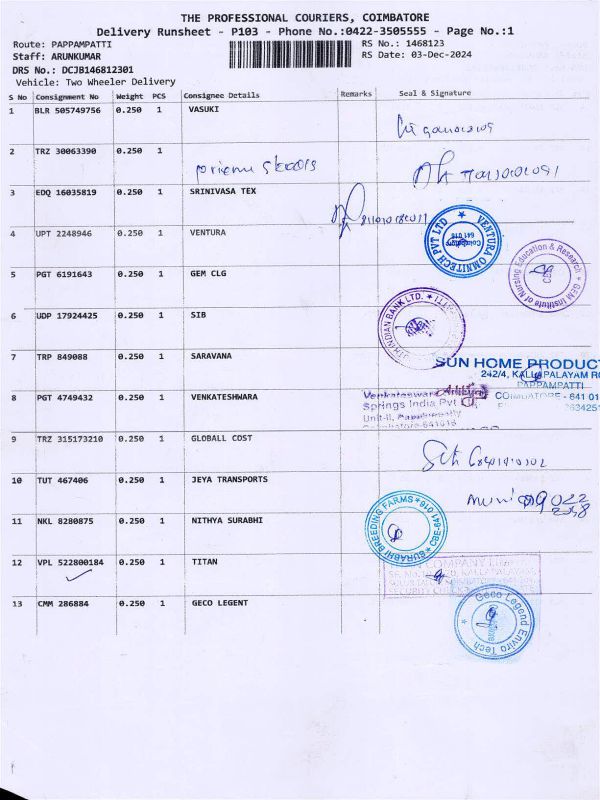 THE PROFESSIONAL COURIERS, COIMBATORE
Delivery Runsheet - P103 - Phone No.:0422-3505555 - Page No.:1
Route: PAPPAMPATTI
Staff: ARUNKUMAR
DRS No.: DCJB146812301
Vehicle: Two Wheeler Delivery
RS No.: 1468123
RS Date: 03-Dec-2024
S No Consignment No Weight PCS Consignee Details Remarks Seal & Signature
1 BLR 505749756 0.250 1 VASUKI
2 TRZ 30063390 0.250 1
3 EDQ 16035819 0.250 1 SRINIVASA TEX
4 UPT 2248946 0.250 1 VENTURA
VENTURA OMNITECH PVT LTD
Coimbatore
641 016
5 PGT 6191643 0.250 1 GEM CLG
GEM Institute of Nursing Education & Research
CBE
6 UDP 17924425 0.250 1 SIB
INDIAN BANK LTD.
7 TRP 849088 0.250 1 SARAVANA
SUN HOME PRODUCT
242/4, KALLAPALAYAM RO
PAPPAMPATTI
COIMBATORE - 641 01
8 PGT 4749432 0.250 1 VENKATESHWARA
Venkateswara
Springs India Pvt
Unit-II, Pappampatty
Coimbatore-641016
9 TRZ 315173210 0.250 1 GLOBALL COST
10 TUT 467406 0.250 1 JEYA TRANSPORTS
11 NKL 8280875 0.250 1 NITHYA SURABHI
SURABHI BREEDING FARMS
CBE-641 016
12 VPL 522800184 0.250 1 TITAN
13 CMM 286884 0.250 1 GECO LEGENT
Geco Legend Enviro Tech